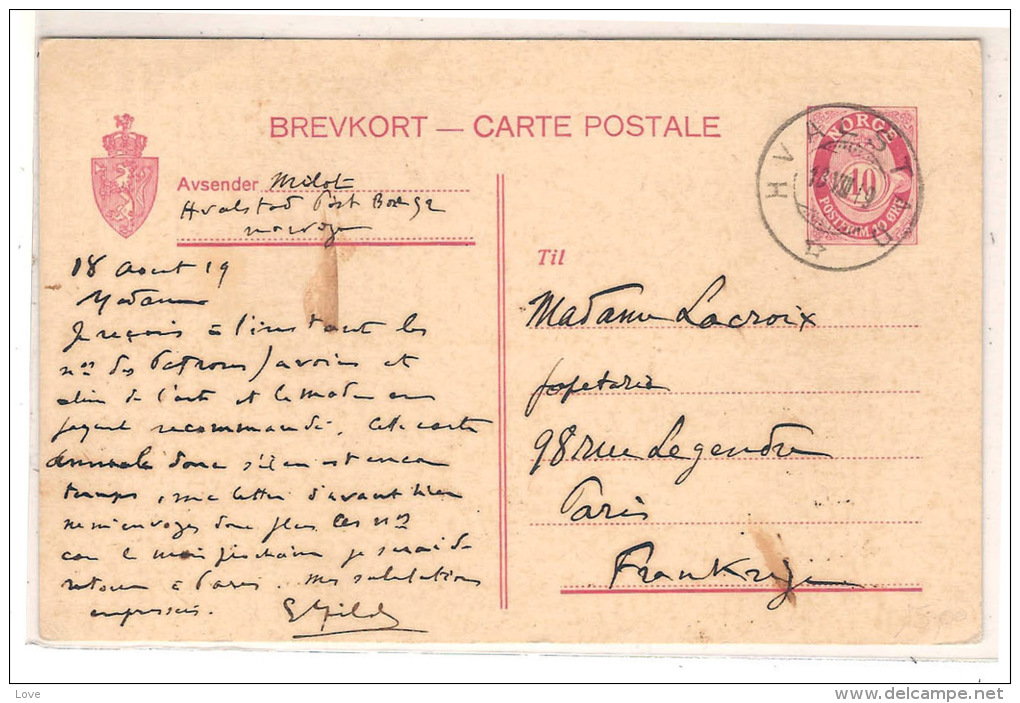 BREVKORT — CARTE POSTALE
NORGE
10
POSTFRIM. 10 ØRE
HVALSTAD
18 VIII 19
Avsender Milot
Hvalstad Post
18 Aout 19
Madame
Je reçois à l'instant les
nos des Patrons
de l'art et
recommandé. Cette carte
annule donc s'il en est encore
temps, ma lettre d'avant hier
ne m'envoyez donc plus les nos
car le mois prochain je serai de
retour à Paris. Mes salutations
empressées.
Til
Madame Lacroix
papeterie
98 rue Legendre
Paris
Frankrige
Love
www.delcampe.net